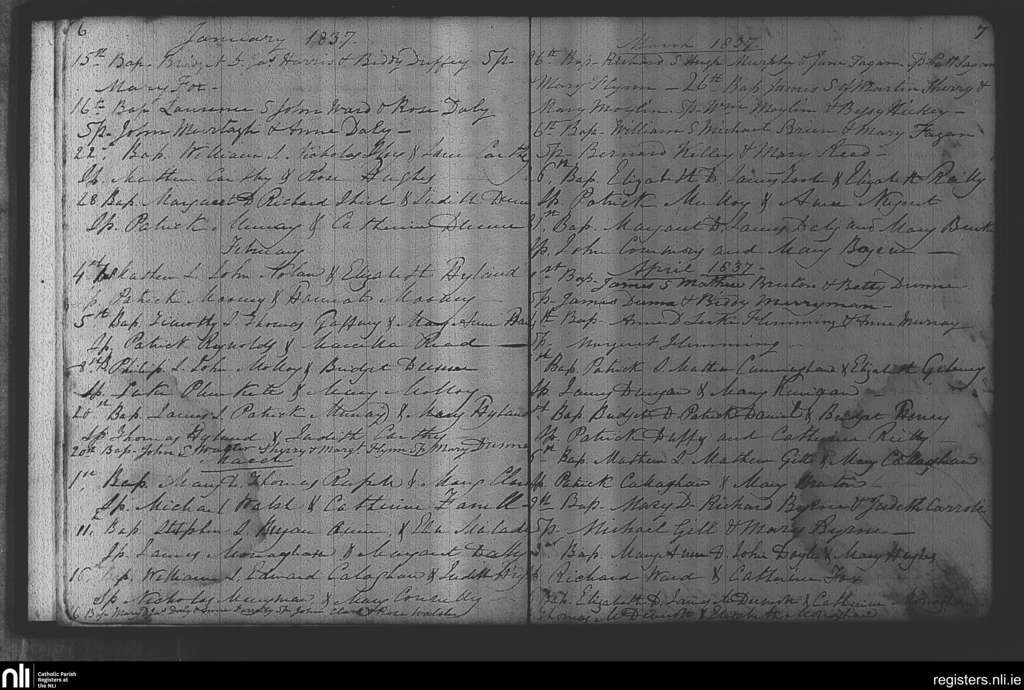 6
January 1837.
15th Bap. Bridget D Jas Harris & Biddy Duffey Sp.
Mary Fox -
16th Bap. Laurence S John Ward & Rose Daly
Sp. John Murtagh & Anne Daly -
22d Bap. William S. Nicholas & Jane Carthy
Sp. Mathew Carthy & Rose Hughes
28 Bap. Margaret D Richard Shiel & Judith Dunne
Sp. Patrick Murray & Catherine Dunne
February
4th Mathew S. John Nolan & Elizabeth Hyland
Sp. Patrick Mooney & Hannah Mooney
5th Bap. Timothy S. Thomas Gaffney & Mary Anne
Sp. Patrick Reynolds & Marcella Read
Philip S. John Molloy & Bridget Dunne
Sp. Luke Plunkett & Mary Molloy
20 Bap. James S Patrick Murray & Mary Hyland
Sp. Thomas Hyland & Judith Carthy
20th Bap. John S Walter Sherry & Margt Flynn Sp. Mary Dunne
March
1st Bap. Mary D. Thomas & Mary
Sp. Michael Walsh & Catherine Farrell
11 Bap. Stephen S. & Malade
Sp. James Monaghan & Margaret Daly
15 Bap. William S. Edward Calaghan & Judith
Sp. Nicholas Merryman & Mary Connolly
Bap. Mary Daly & Sp. John Clark & Rose Walsh
7
March 1837.
26th Bap. Richard S Hugh Murphy & Jane Fagan Sp. Patt Fagan
Mary Flynn - 26th Bap. James S of Martin &
Mary Moylin Sp. Wm Moylin & Bessy Hickey -
6th Bap. William S Michael Brien & Mary Fagan
Sp. Bernard Killey & Mary Reed -
6th Bap. Elizabeth D. James & Elizabeth Reilly
Sp. Patrick Mulloy & Anne Nugent
Bap. Margaret D. James Daly and Mary
Sp. John Commons and Mary
April 1837 -
Bap. James S Mathew Bruton & Betty Dunne
Sp. James Dunne & Biddy Merryman -
Bap. Anne D Luke Flemming & Anne Murray
Sp. Margaret Flemming
Bap. Patrick S Mathew Cunningham & Elizabeth
Sp. James Dungan & Mary Kerrigan
Bap. Bridget D Patrick Daniel & Bridget Henry
Sp. Patrick Duffy and Catherine Reilly -
Bap. Mathew S. Mathew Gill & Mary Callaghan
Sp. Patrick Calaghan & Mary Bruton
9th Bap. Mary D. Richard Byrne & Judith Carroll
Sp. Michael Gill & Mary Byrne -
Bap. Mary Anne D. John Doyle & Mary Hughes
Richard Ward & Catherine Fox
Bap. Elizabeth D. James & Catherine Monaghan
Thomas & Elizabeth Monaghan
nli
Catholic Parish
Registers at
the NLI
registers.nli.ie